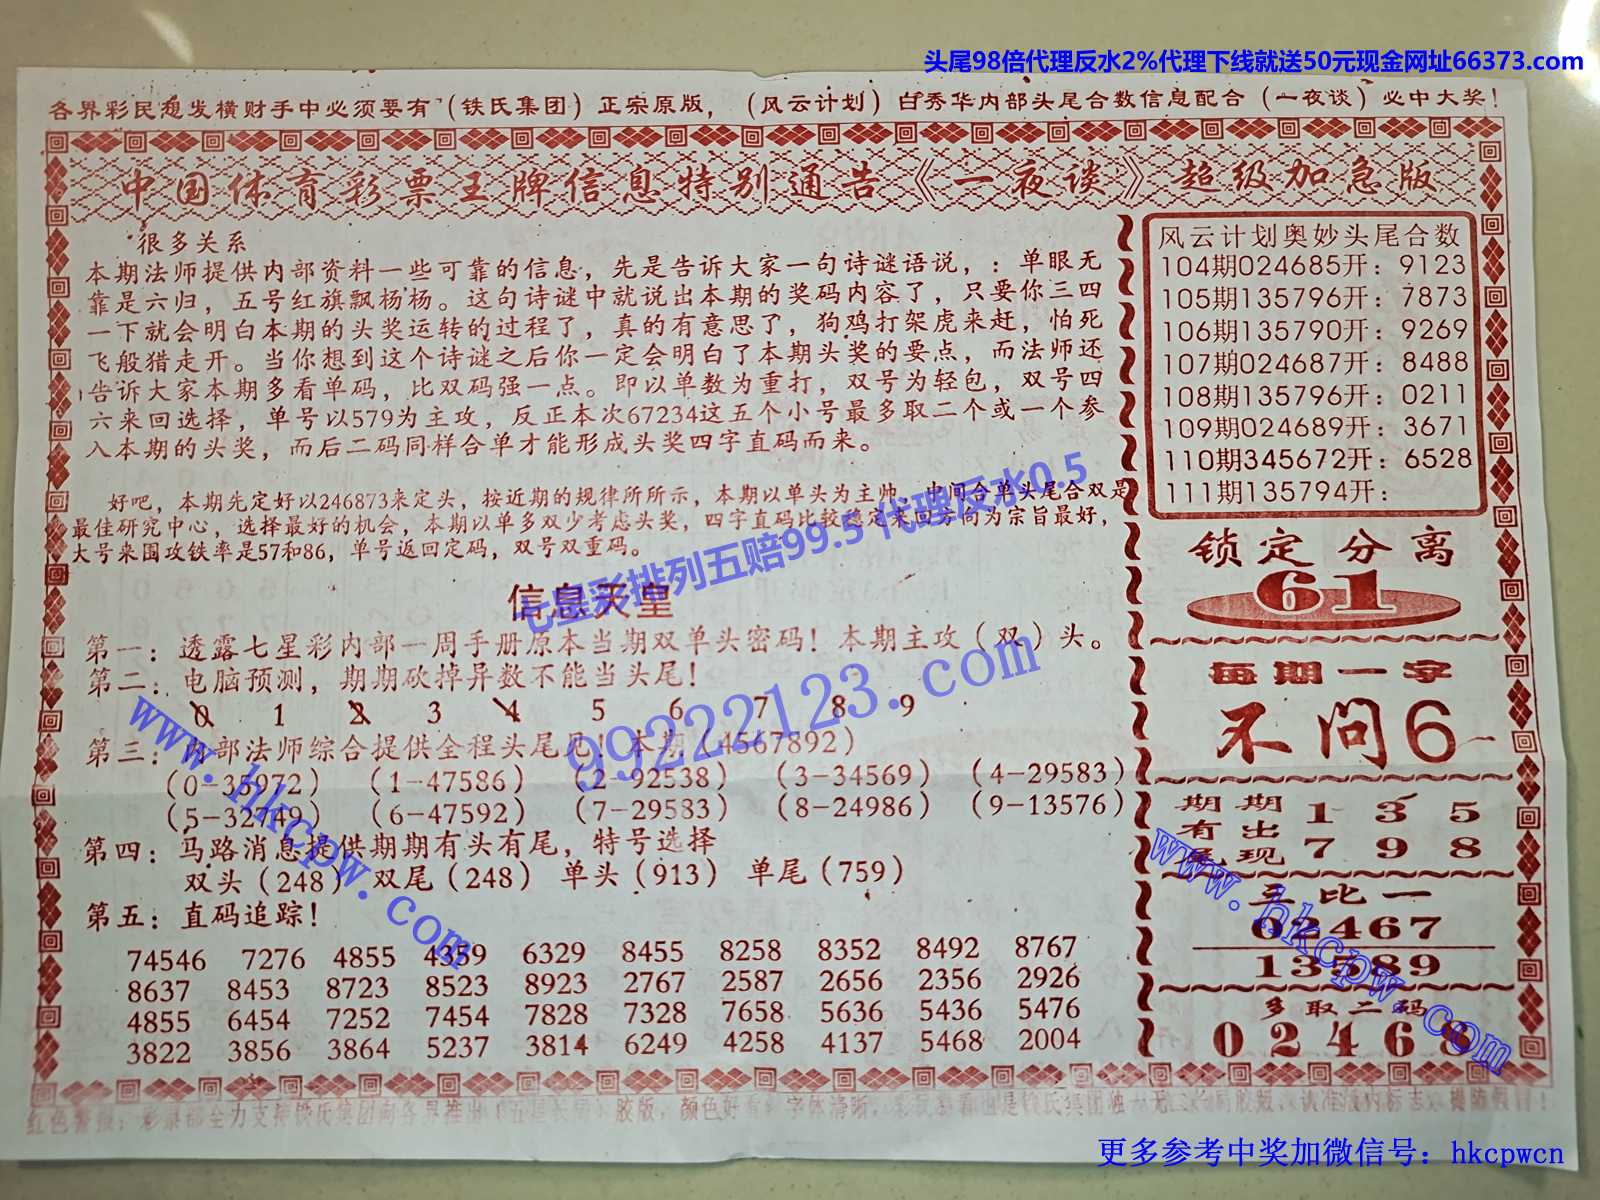 头尾98倍代理反水2%代理下线就送50元现金网址66373.com
各界彩民想发横财手中必须要有（铁氏集团）正宗原版，（风云计划）白秀华内部头尾合数信息配合（一夜谈）必中大奖！
中国体育彩票王牌信息特别通告《一夜谈》超级加急版
很多关系
本期法师提供内部资料一些可靠的信息，先是告诉大家一句诗谜语说，：单眼无
靠是六归，五号红旗飘杨杨。这句诗谜中就说出本期的奖码内容了，只要你三四
一下就会明白本期的头奖运转的过程了，真的有意思了，狗鸡打架虎来赶，怕死
飞般猎走开。当你想到这个诗谜之后你一定会明白了本期头奖的要点，而法师还
告诉大家本期多看单码，比双码强一点。即以单数为重打，双号为轻包，双号四
六来回选择，单号以579为主攻，反正本次67234这五个小号最多取二个或一个参
入本期的头奖，而后二码同样合单才能形成头奖四字直码而来。
好吧，本期先定好以246873来定头，按近期的规律所所示，本期以单头为主帅，中间合单头尾合双是
最佳研究中心，选择最好的机会，本期以单多双少考虑头奖，四字直码比较稳定来回方向为宗旨最好，
大号来围攻铁率是57和86，单号返回定码，双号双重码。
七星彩排列五赔99.5 代理反水0.5
信息天皇
第一：透露七星彩内部一周手册原本当期双单头密码！本期主攻（双）头。
第二：电脑预测，期期砍掉异数不能当头尾！
0 1 2 3 4 5 6 7 8 9
第三：内部法师综合提供全程头尾见！本期（4567892）
（0-35972）（1-47586）（2-92538）（3-34569）（4-29583）
（5-32749）（6-47592）（7-29583）（8-24986）（9-13576）
第四：马路消息提供期期有头有尾，特号选择
双头（248） 双尾（248） 单头（913） 单尾（759）
第五：直码追踪！
74546 7276 4855 4359 6329 8455 8258 8352 8492 8767
8637 8453 8723 8523 8923 2767 2587 2656 2356 2926
4855 6454 7252 7454 7828 7328 7658 5636 5436 5476
3822 3856 3864 5237 3814 6249 4258 4137 5468 2004
99222123.com
www.hkcpw.com
风云计划奥妙头尾合数
104期024685开：9123
105期135796开：7873
106期135790开：9269
107期024687开：8488
108期135796开：0211
109期024689开：3671
110期345672开：6528
111期135794开：
锁定分离
61
每期一字
不问6
期期 1 3 5
有出
尾现 7 9 8
三比一
02467
13589
多取二码
0 2 4 6 8
www.hkcpw.com
红色警报：彩票部全力支持铁氏集团向各界推出
胶版，颜色好看，字体清晰，
更多参考中奖加微信号：hkcpwcn